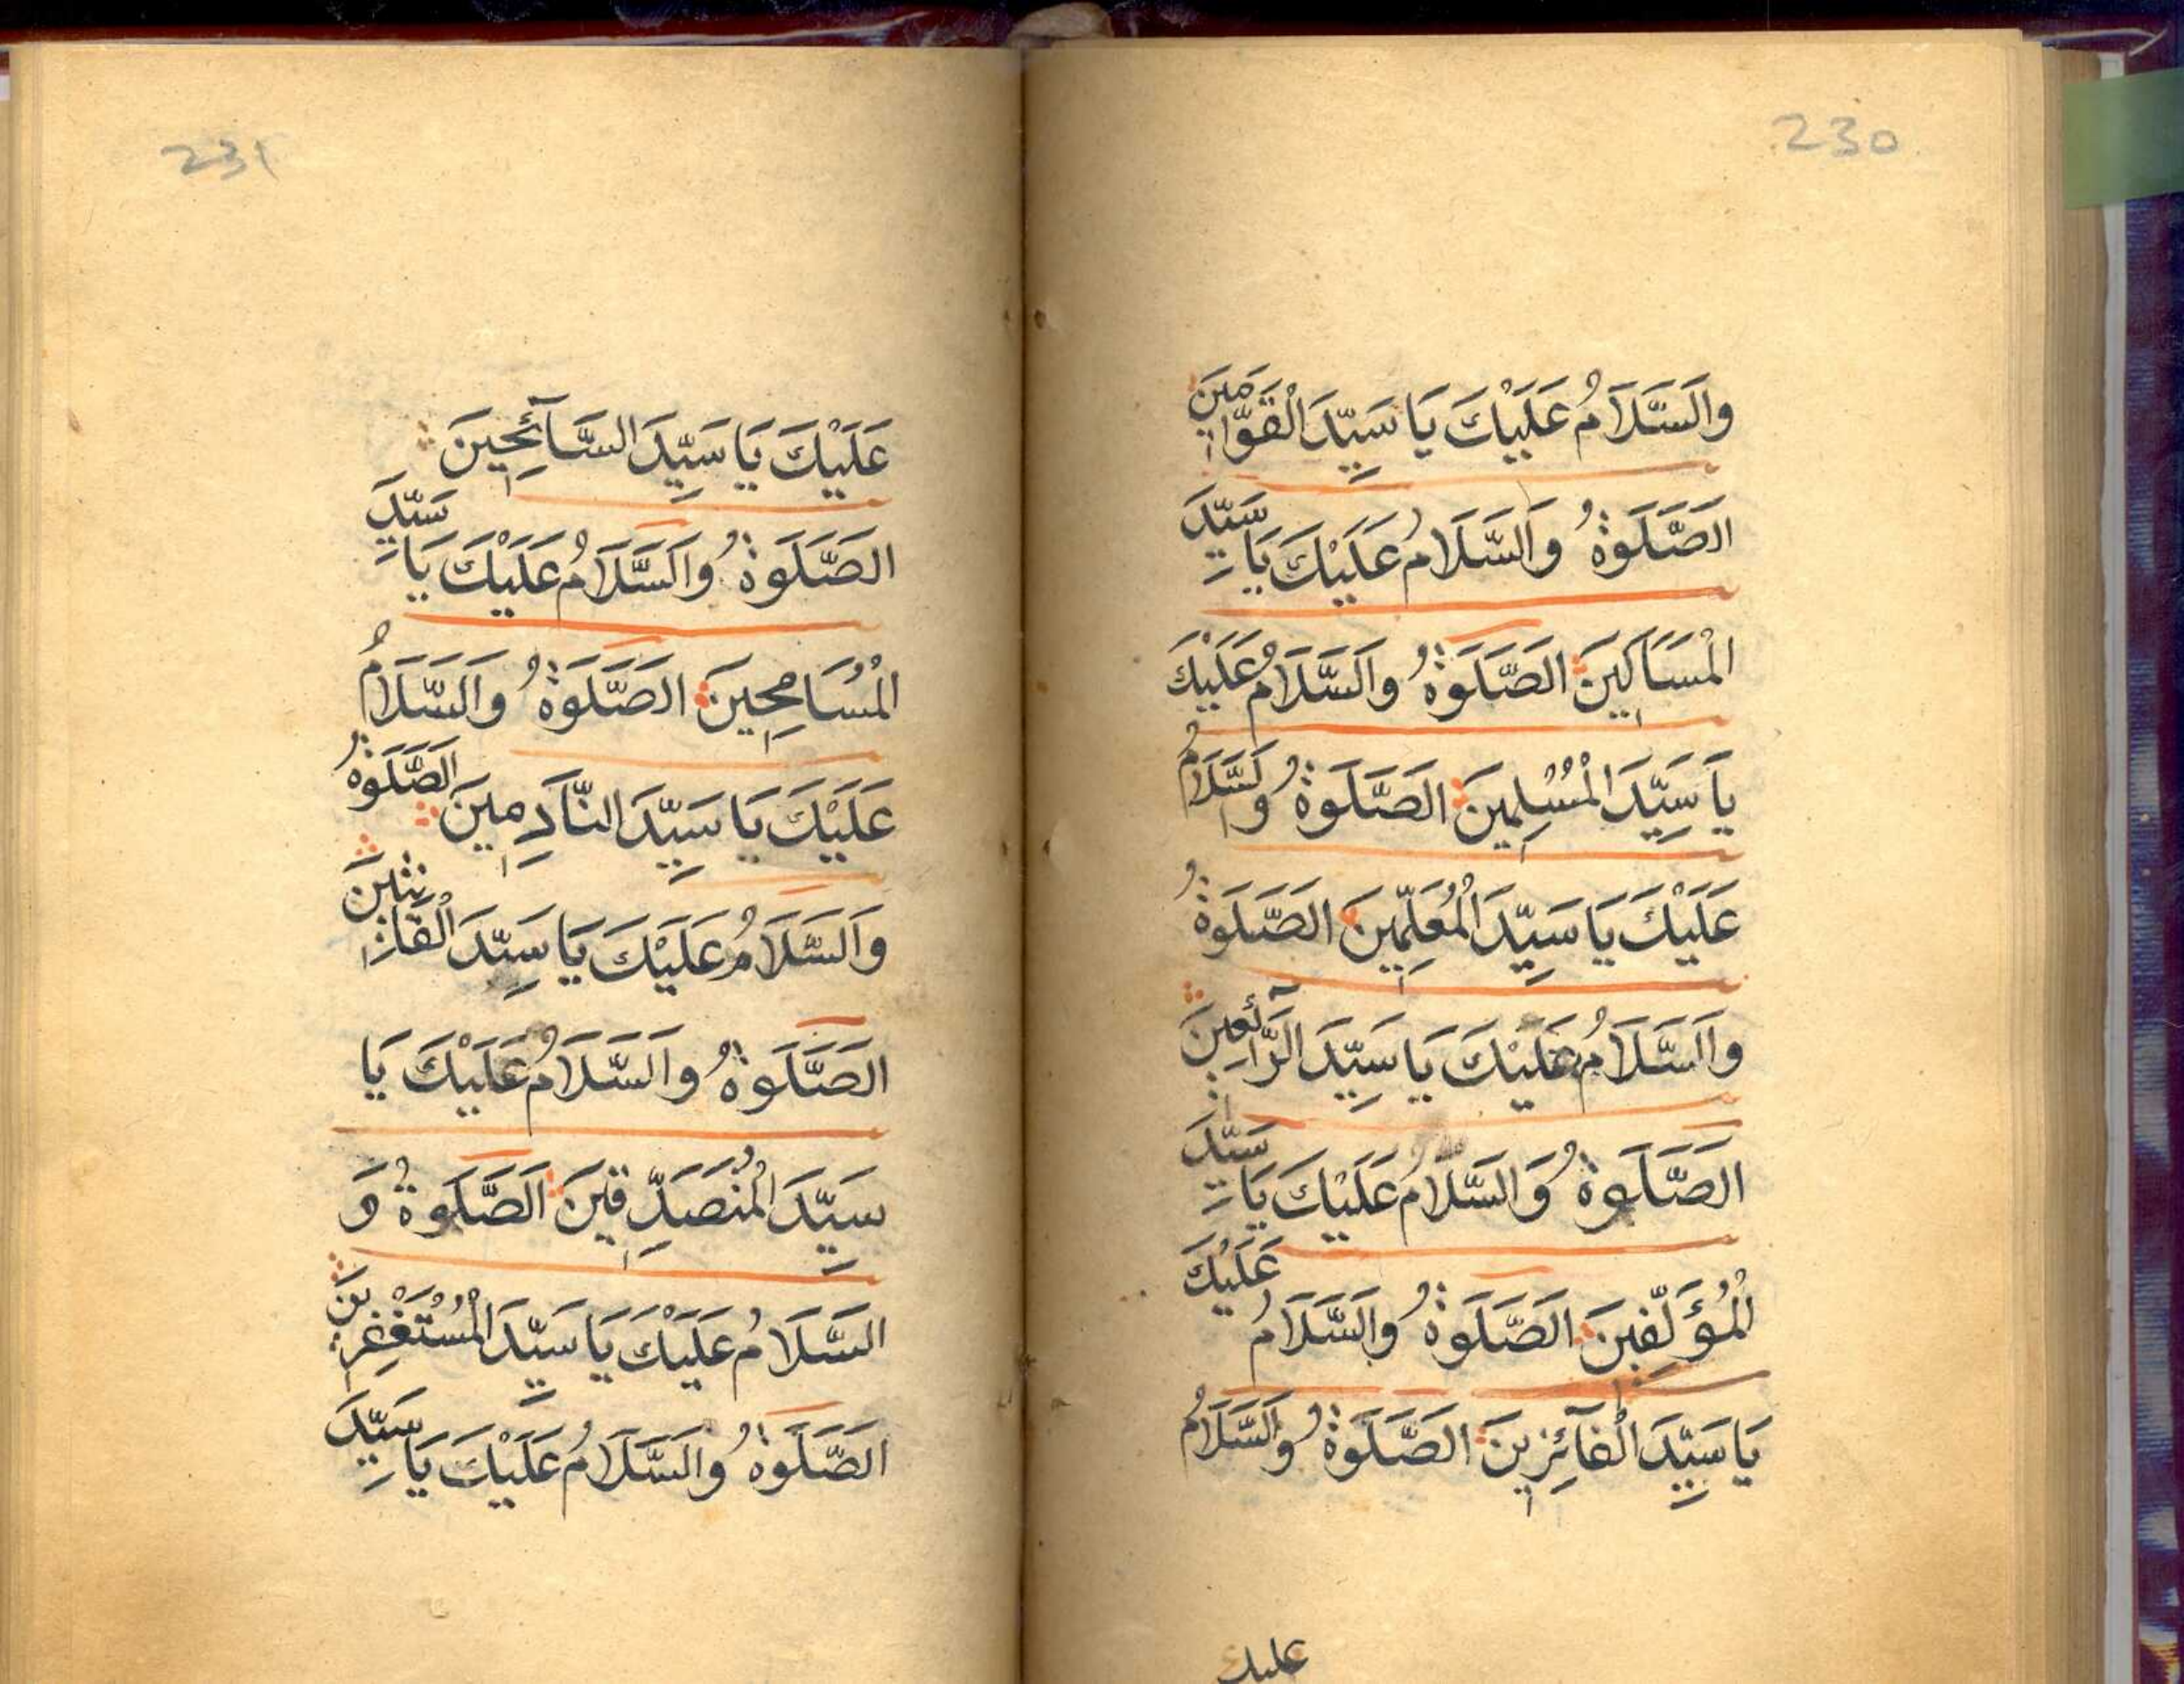 230
وَالسَّلَامُ عَلَيْكَ يَا سَيِّدَ الْقَوَّامِينَ
الصَّلَوةُ وَالسَّلَامُ عَلَيْكَ يَا سَيِّدَ
الْمَسَاكِينَ الصَّلَوةُ وَالسَّلَامُ عَلَيْكَ
يَا سَيِّدَ الْمُسْلِمِينَ الصَّلَوةُ وَالسَّلَامُ
عَلَيْكَ يَا سَيِّدَ الْمُعَلِّمِينَ الصَّلَوةُ
وَالسَّلَامُ عَلَيْكَ يَا سَيِّدَ
الصَّلَوةُ وَالسَّلَامُ عَلَيْكَ يَا سَيِّدَ
الْمُؤَلِّفِينَ الصَّلَوةُ وَالسَّلَامُ عَلَيْكَ
يَا سَيِّدَ الْفَآئِزِينَ الصَّلَوةُ وَالسَّلَامُ
عليك
231
عَلَيْكَ يَا سَيِّدَ السَّآئِحِينَ
الصَّلَوةُ وَالسَّلَامُ عَلَيْكَ يَا سَيِّدَ
الْمُسَامِحِينَ الصَّلَوةُ وَالسَّلَامُ
عَلَيْكَ يَا سَيِّدَ النَّادِمِينَ الصَّلَوةُ
وَالسَّلَامُ عَلَيْكَ يَا سَيِّدَ الْقَانِتِينَ
الصَّلَوةُ وَالسَّلَامُ عَلَيْكَ يَا
سَيِّدَ الْمُتَصَدِّقِينَ الصَّلَوةُ وَ
السَّلَامُ عَلَيْكَ يَا سَيِّدَ الْمُسْتَغْفِرِينَ
الصَّلَوةُ وَالسَّلَامُ عَلَيْكَ يَا سَيِّدَ